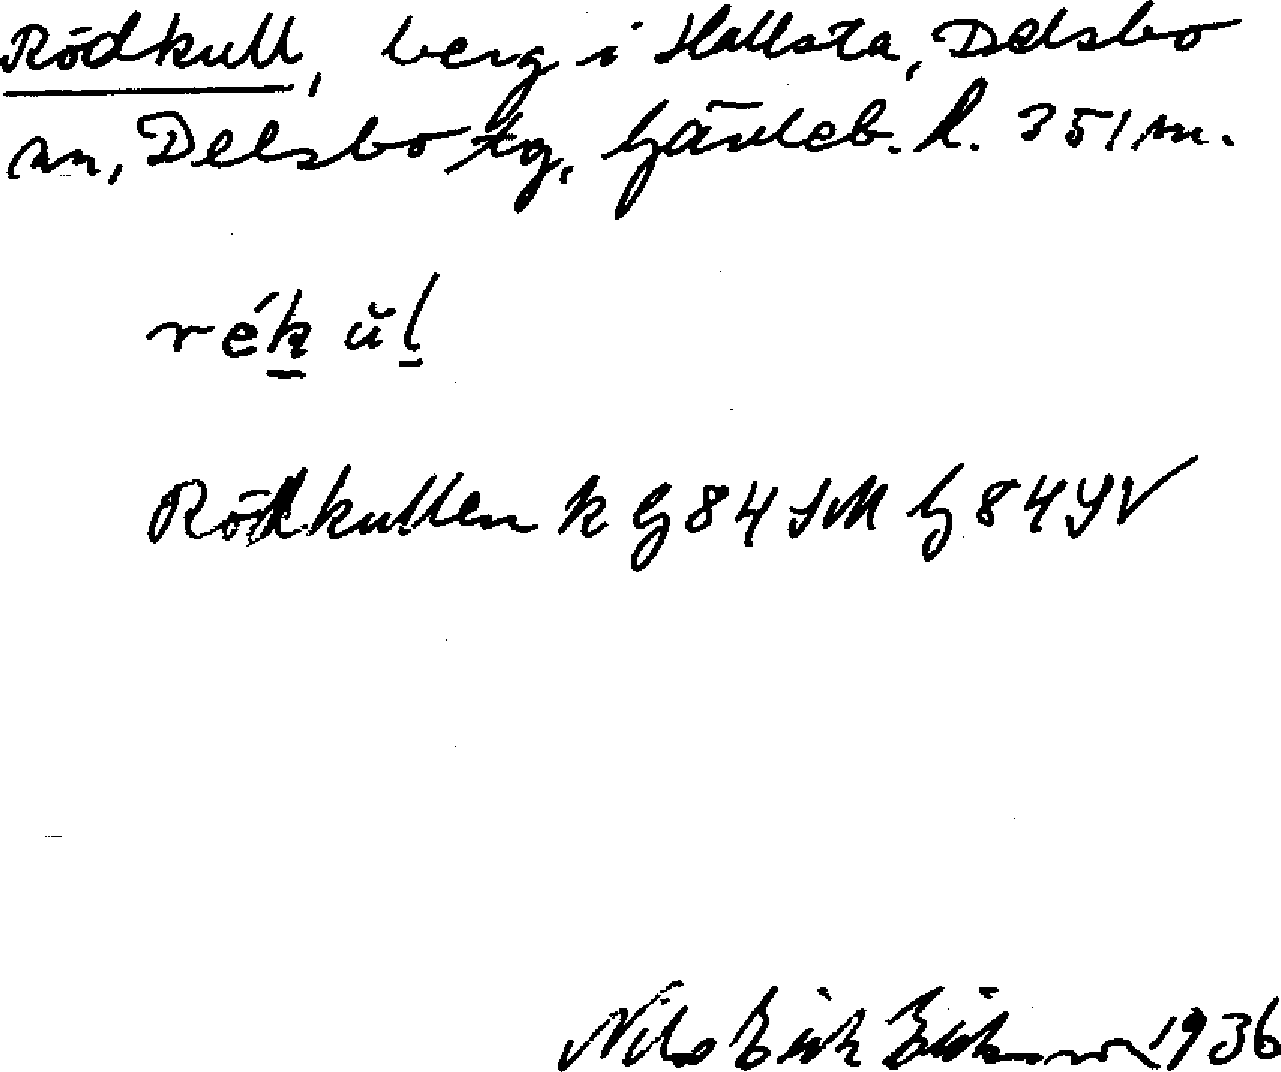 Rödkull, berg i Hallsta, Delsbo
sn, Delsbo tg, Gävleb. l. 351 m.
rékŭl
Rödkullen k G 84 G 84 SV
Nils Erik Erikson 1936